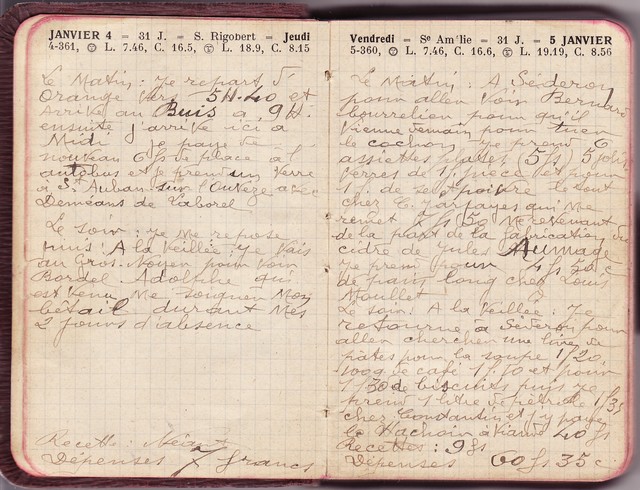 JANVIER 4 — 31 J. — S. Rigobert — Jeudi
4-361, L. 7.46, C. 16.5, L. 18.9, C. 8.15
Le Matin : Je repart d'
Orange vers 5H.40 et
Arrive au Buis a 9H.
ensuite j'arrive ici a
Midi je paye de
nouveau 6 fs de place a l'
autobus et je prend un verre
à St Auban sur l'Ouvèze avec
Demeans de Laborel
Le soir : Je me repose
puis : A la Veillée : Je Vais
au Gros Noyer pour voir
Bordel Adolphe qui
est venu Me soigner Mon
bétail durant Mes
2 jours d'absence
Recette : Néant
Dépenses 7 francs
Vendredi — Se Am'lie — 31 J — 5 JANVIER
5-360, L. 7.46, C. 16.6, L. 19.19, C. 8.56
Le Matin : A Séderon
pour aller voir Bernard
bourrelier pour qu'il
Vienne demain pour tuer
le cochon, je prend 6
assiettes plates (5 fs) 5 jolis
verres de 1f. pièce et pour
1f. de sel et poivre le tout
chez C. Jarjayes qui Me
remet 5 fs 50 Me revenant
de la part de la fabrication du
cidre de Jules Aumage
Je prend pour 4 fs 50 c
de pain long chez Louis
Moullet
Le soir : A la Veillée : Je
retourne a Séderon pour
aller chercher une livre de
pâtes pour la soupe 1f20
100g de café 1f.10 et pour
1f50 de biscuits puis je
prend 1 litre de pétrole 1f35
chez Constantin et j'y paye
le Hachoir à viande 40 fs
Recettes : 9 fs
Dépenses 60 fs 35 c.